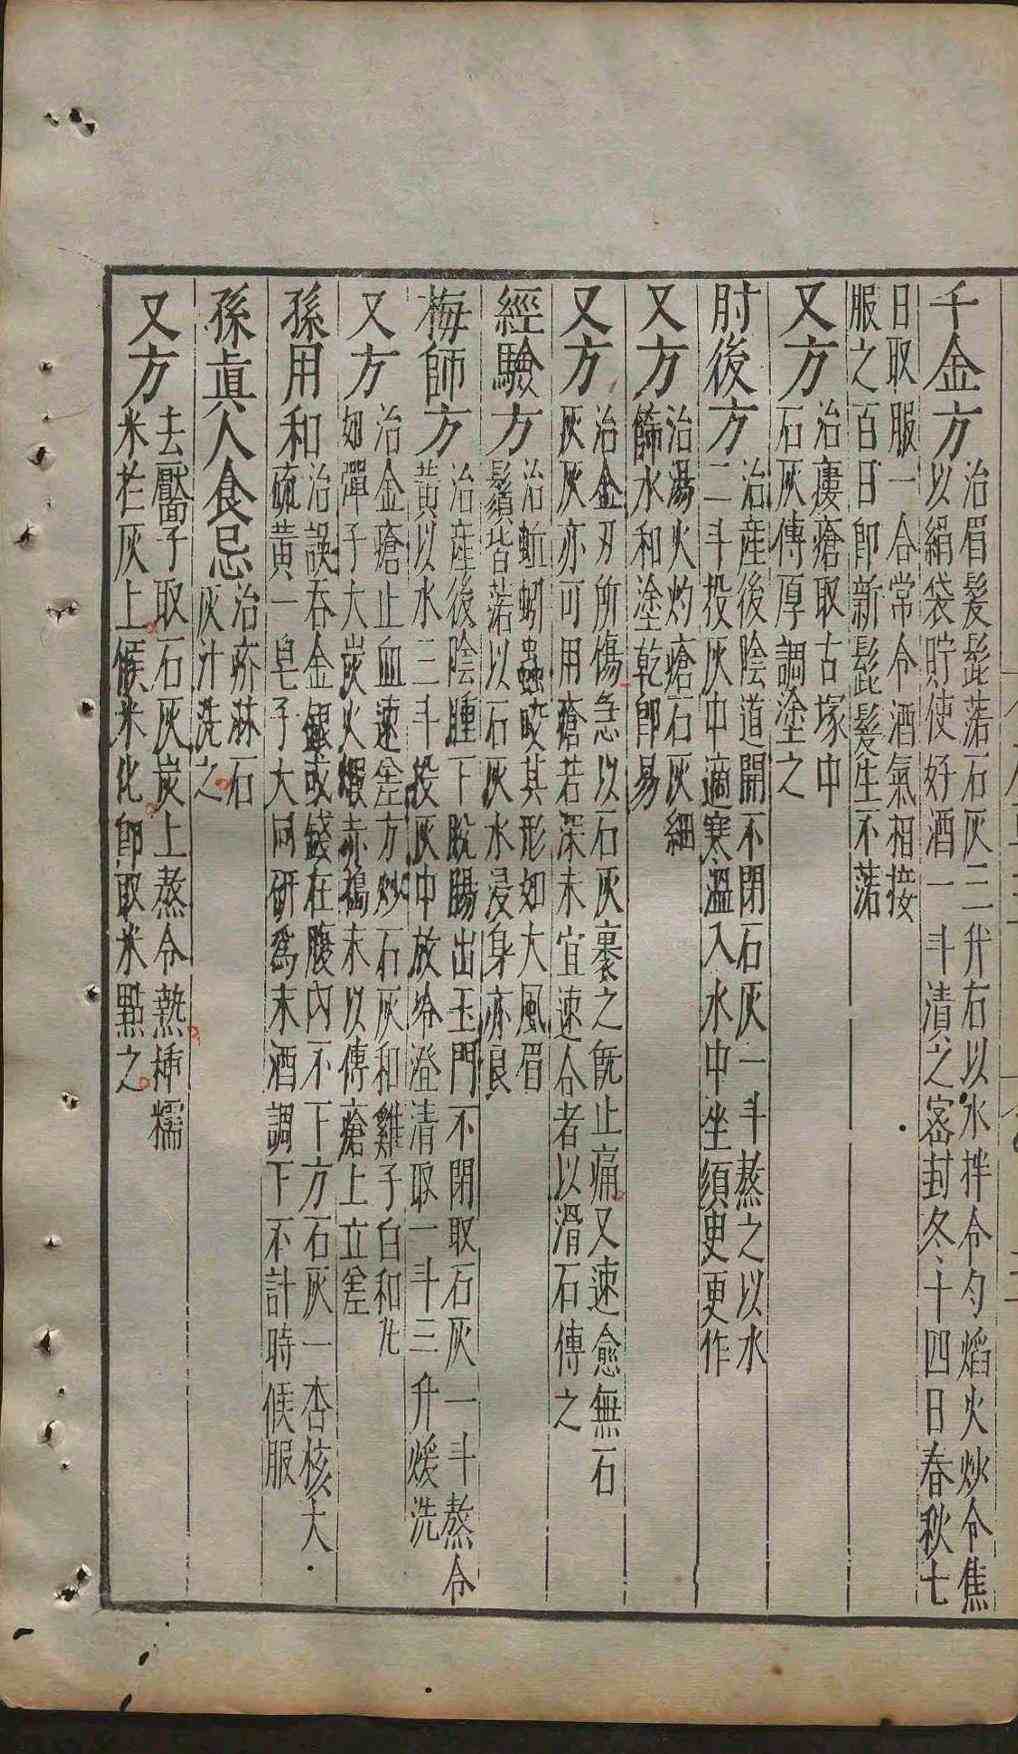 千金方治眉髮髭落石灰三升右以水拌令勻焰火炒令焦
以絹袋貯使好酒一斗漬之密封冬十四日春秋七
日取服一合常令酒氣相接
服之百日即新髭髮生不落
又方治瘻瘡取古塚中
石灰傅厚調塗之
肘後方治産後陰道開不閉石灰一斗熬之以水
二斗投灰中適寒溫入水中坐須更作
又方治湯火灼瘡石灰細
篩水和塗乾即易
又方治金刃所傷急以石灰裹之既止痛又速愈無石
灰灰亦可用瘡若深未宜速合者以滑石傅之
經驗方治蚯蚓蟲咬其形如大風眉
鬚皆落以石灰水浸身亦良
梅師方治産後陰腫下脫腸出玉門不閉取石灰一斗熬令
黃以水三斗投灰中放冷澄清取一斗三升煖洗
又方治金瘡止血速差方炒石灰和雞子白和丸
如彈子大炭火煆赤搗末以傅瘡上立差
孫用和治誤吞金銀或錢在腹內不下方石灰一杏核大
硫黃一皂子大同研爲末酒調下不計時候服
孫眞人食忌治疥淋石
灰汁洗之
又方去黶子取石灰炭上熬令熱插糯
米在灰上候米化即取米點之